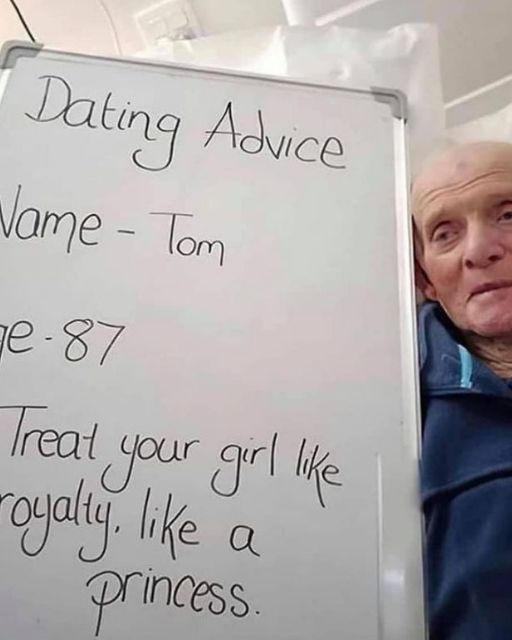 Dating Advice
Name - Tom
ge - 87
Treat your girl like
royalty, like a
princess.